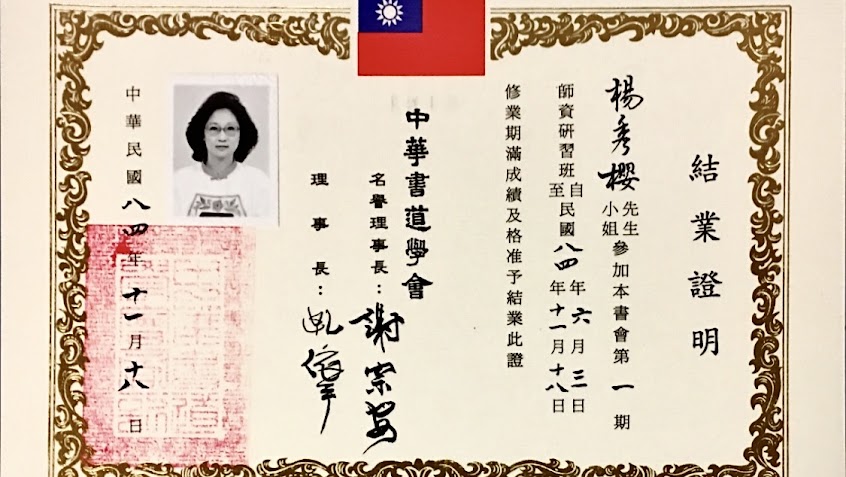 結業證明
楊秀櫻先生小姐參加本書會第一期
師資研習班自民國八四年六月三日至八四年十一月十八日
修業期滿成績及格准予結業此證
中華書道學會
名譽理事長：謝宗安
理事長：
中華民國八四年十一月十八日